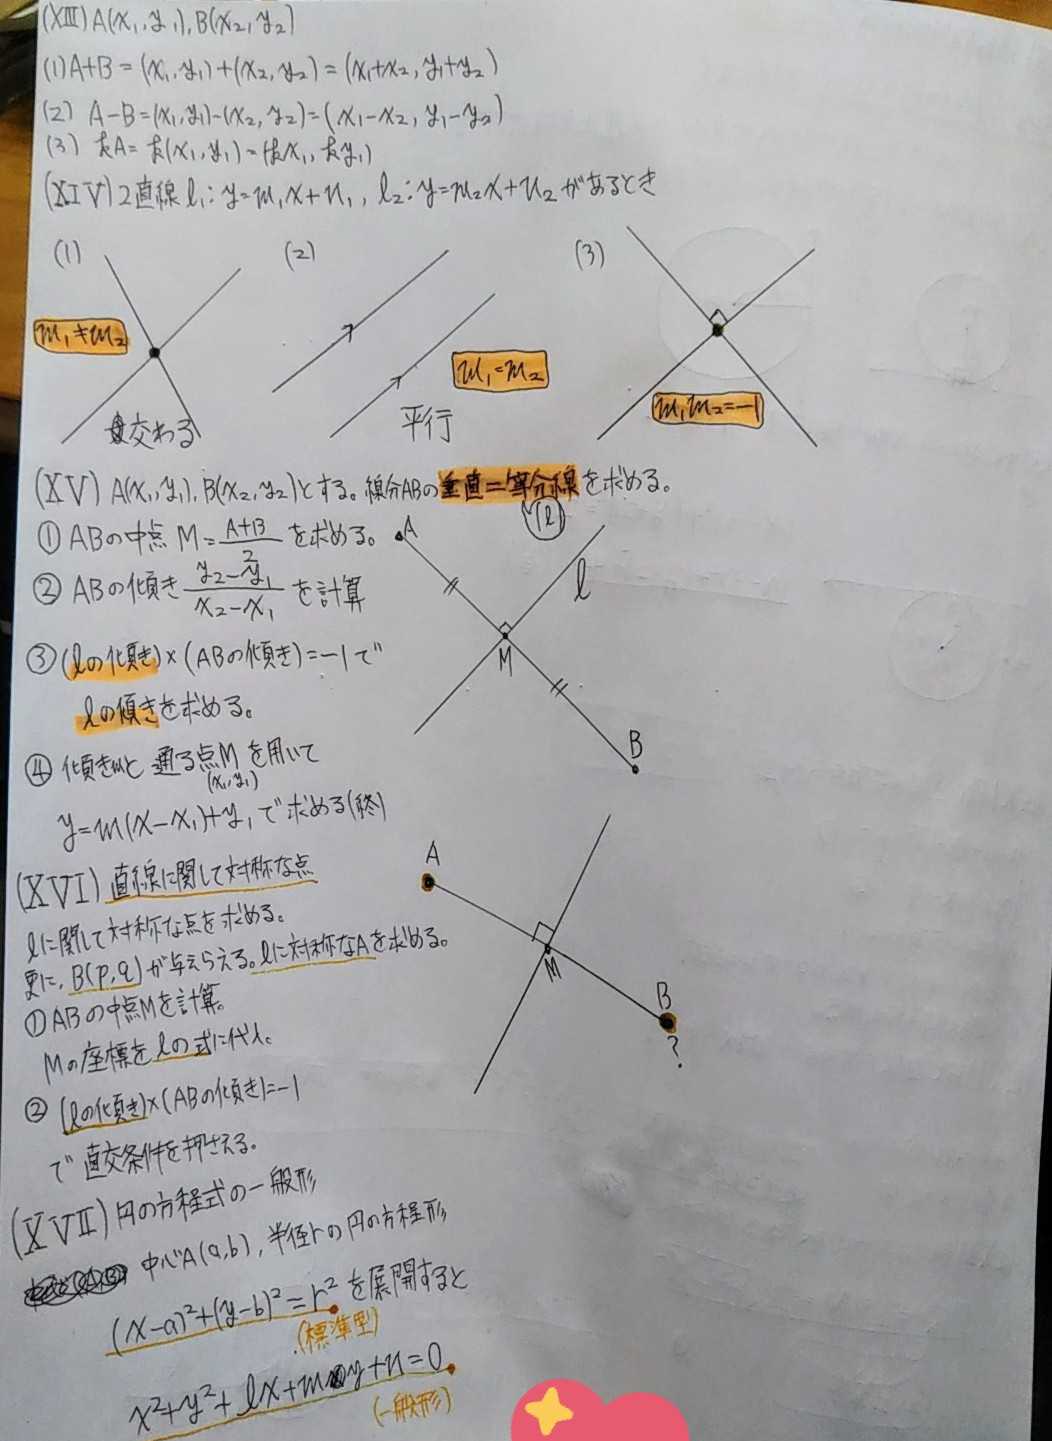 (XIII) A(x₁, y₁), B(x₂, y₂)
(1) A+B = (x₁, y₁)+(x₂, y₂) = (x₁+x₂, y₁+y₂)
(2) A−B = (x₁, y₁)−(x₂, y₂) = (x₁−x₂, y₁−y₂)
(3) kA = k(x₁, y₁) = (kx₁, ky₁)
(XIV) 2直線 l₁: y=m₁x+n₁, l₂: y=m₂x+n₂ があるとき
(1) (2) (3)
m₁≠m₂
m₁=m₂
m₁m₂=−1
交わる
平行
(XV) A(x₁, y₁), B(x₂, y₂)とする。線分ABの垂直二等分線を求める。
(l)
① ABの中点 M = (A+B)/2 を求める。
② ABの傾き (y₂−y₁)/(x₂−x₁) を計算
③ (lの傾き)×(ABの傾き)=−1で
lの傾きを求める。
④ 傾きmと通る点Mを用いて
(x₁, y₁)
y=m(x−x₁)+y₁で求める(終)
A
l
M
B
(XVI) 直線に関して対称な点
lに関して対称な点を求める。
更に、B(p, q)が与えらえる。lに対称なAを求める。
① ABの中点Mを計算。
Mの座標をlの式に代入。
② (lの傾き)×(ABの傾き)=−1
で直交条件を押さえる。
A
M
B
?
(XVII) 円の方程式の一般形
中心A(a, b), 半径rの円の方程形
(x−a)²+(y−b)²=r² を展開すると
(標準型)
x²+y²+lx+my+n=0
(一般形)